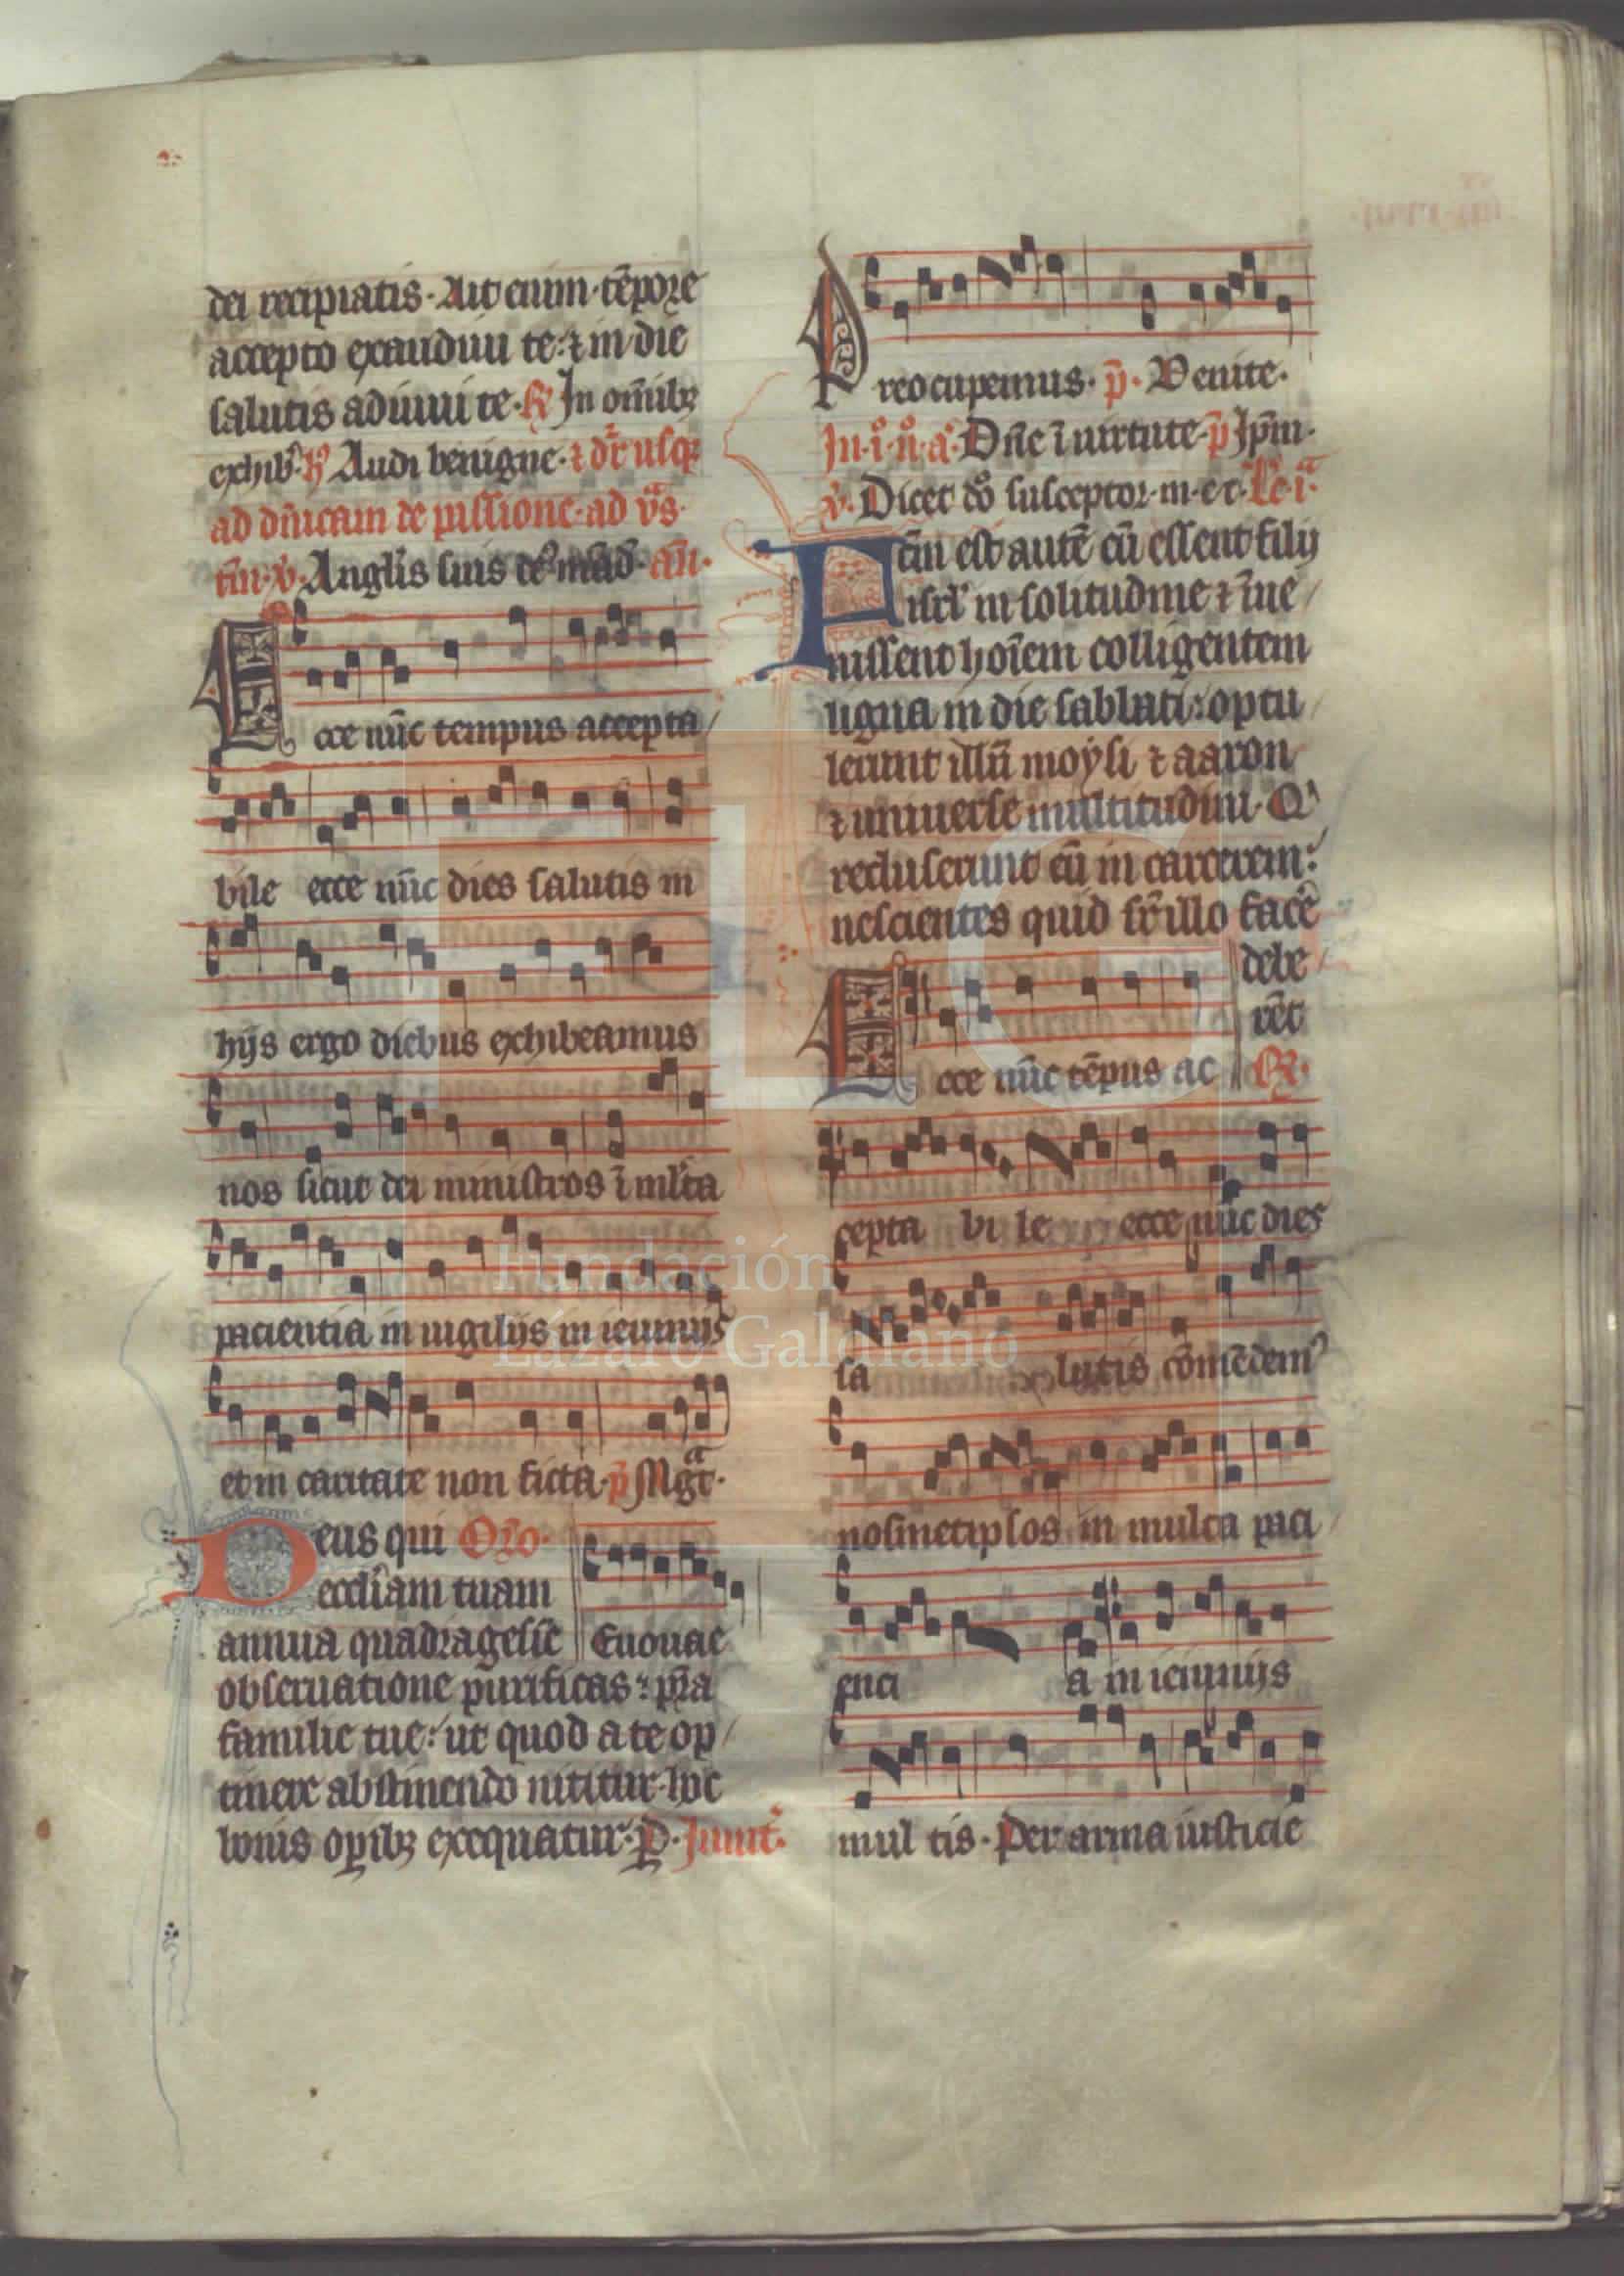 dei recipiatis. Ait enim. tẽpore
accepto exaudiui te: ⁊ in die
salutis adiuui te. R̸ In om̃ibꝫ
exhib̾. h̾ Audi benigne. ⁊ dr̃ usqꝫ
ad dñicam de passione. ad v̾s
ṽ. Angl̃is suis de⁹ mãd. añ.
Ecce nũc tempus accepta/
bile ecce nũc dies salutis in
hijs ergo diebus exhibeamus
nos sicut dei ministros ĩ ml̃ta
pacientia in uigilijs in ieiunijs
et in caritate non ficta. p̃ Mgᵃt.
Deus qui Oro.
eccl̃iam tuam
annua quadragesim̃e Euouae
obseruatione purificas: pᵃ̃ta
familie tue: ut quod a te op/
tinere abstinendo nititur. hoc
bonis oꝑibꝫ exequatur. P. Inuit.
Preocupemus. p̃. Venite.
In. i. n. a. Dñe ĩ uirtute. p̃ Ip̃m.
v̾. Dicet dõ susceptor. m. e t. Lc̃. i.
Fc̃m est autẽ cũ essent filij
isrl̃ in solitudine ⁊ ĩue/
nissent hoĩem colligentem
ligna in die sabbati: optu/
lerunt illũ moysi ⁊ aaron
⁊ uniuerse multitudini. Q̾
recluserunt eũ in carcerem:
nescientes quid sr̃ illo facẽ
debe
rẽt
Ecce nũc tẽpus ac R̸.
cepta bi le ecce nũc dies
sa lutis cõmẽdem⁹
nosmetipsos in multa paci/
enci a in ieiunijs
mul tis. Per arma iusticie